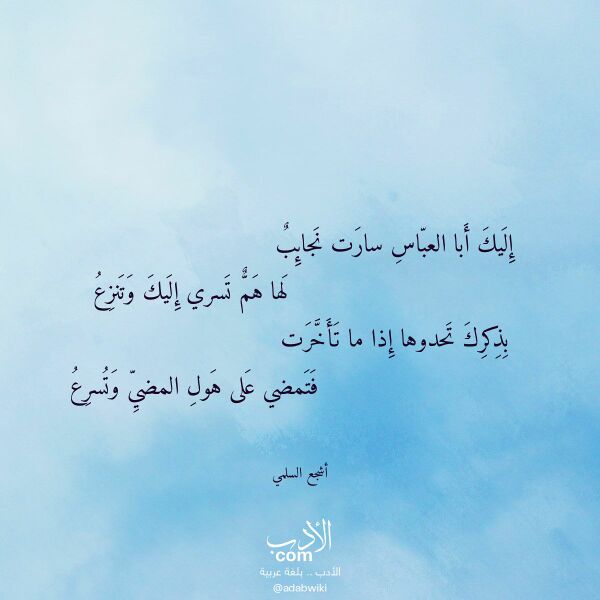 إِلَيكَ أَبا العبّاسِ سارَت نَجائِبٌ
لَها هَمٌّ تَسري إِلَيكَ وَتَنزِعُ
بِذِكرِكَ تَحدوها إِذا ما تَأَخَّرَت
فَتَمضي عَلى هَولِ المضيِّ وَتُسرِعُ
أشجع السلمي
الأدب
com
الأدب .. بلغة عربية
@adabwiki